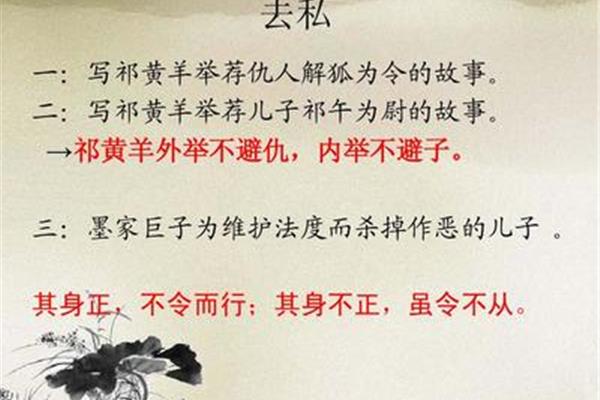 去私
一：写祁黄羊举荐仇人解狐为令的故事。
二：写祁黄羊举荐儿子祁午为尉的故事。
→祁黄羊外举不避仇，内举不避子。
三：墨家巨子为维护法度而杀掉作恶的儿子 。
其身正，不令而行；其身不正，虽令不从。